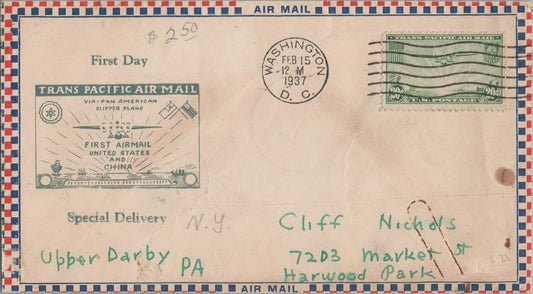 AIR MAIL
$2.50
First Day
TRANS PACIFIC AIR MAIL
VIA-PAN AMERICAN
CLIPPER PLANE
FIRST AIRMAIL
UNITED STATES
AND
CHINA
Special Delivery
WASHINGTON
FEB 15
12 M
1937
D. C.
TRANS-PACIFIC AIR MAIL
20¢ 20¢
N.Y.
Upper Darby
PA
Cliff Nichols
7203 Market St
Harwood Park
AIR MAIL